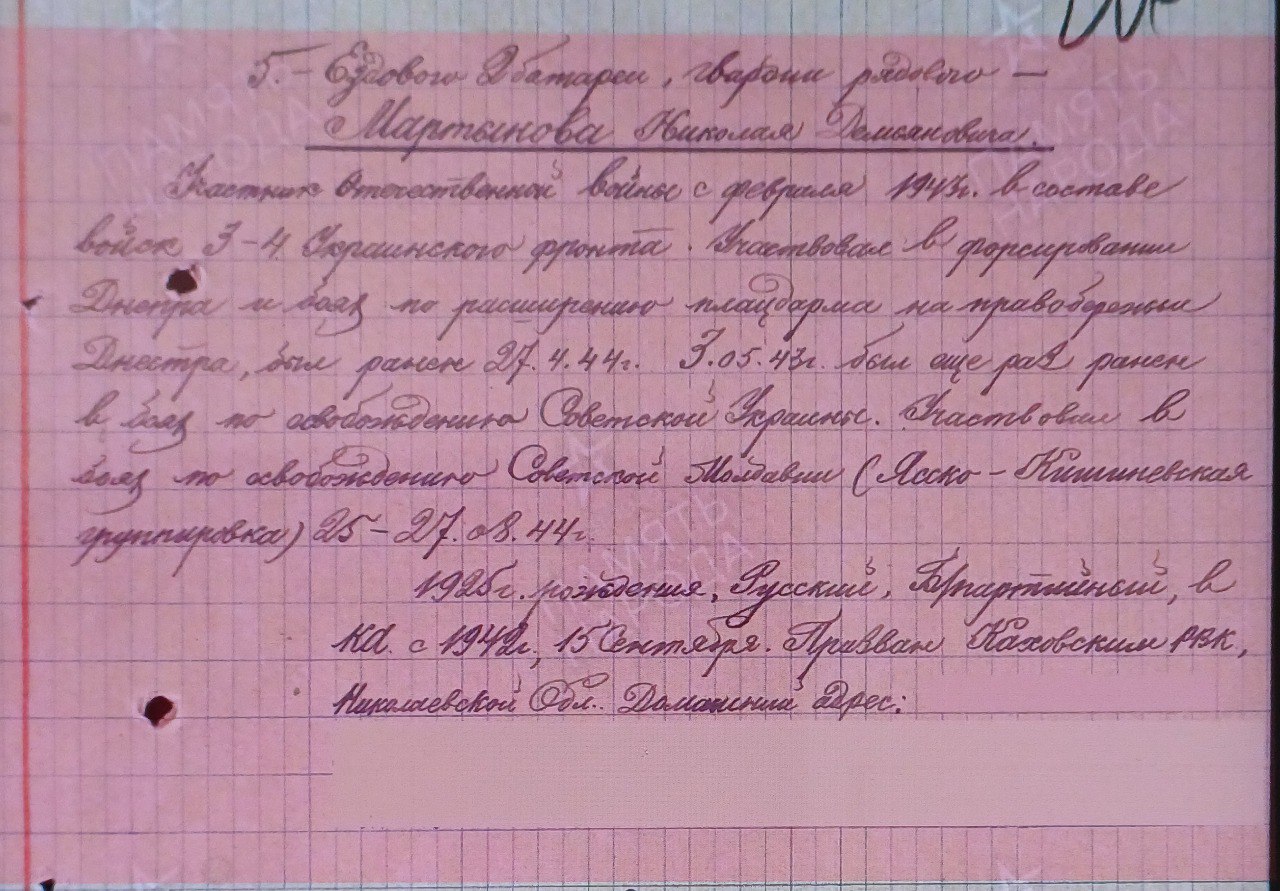 5. – Ездового 2 батареи, гвардии рядового –
Мартынова Николая Демьяновича.
Участник Отечественной войны с февраля 1943г. в составе
войск 3-4 Украинского фронта. Участвовал в форсировании
Днепра и боях по расширению плацдарма на правобережьи
Днестра, был ранен 27.4.44г. 3.05.43г. был еще раз ранен
в боях по освобождению Советской Украины. Участвовал в
боях по освобождению Советской Молдавии (Ясско-Кишиневская
группировка) 25-27.08.44г.
1925г. рождения, Русский, Б/партийный, в
КА с 1942г., 15 Сентября. Призван Каховским РВК,
Николаевской Обл. Домашний адрес:
ПАМЯТЬ
НАРОДА
ПАМЯТЬ
НАРОДА
ПАМЯТЬ
НАРОДА